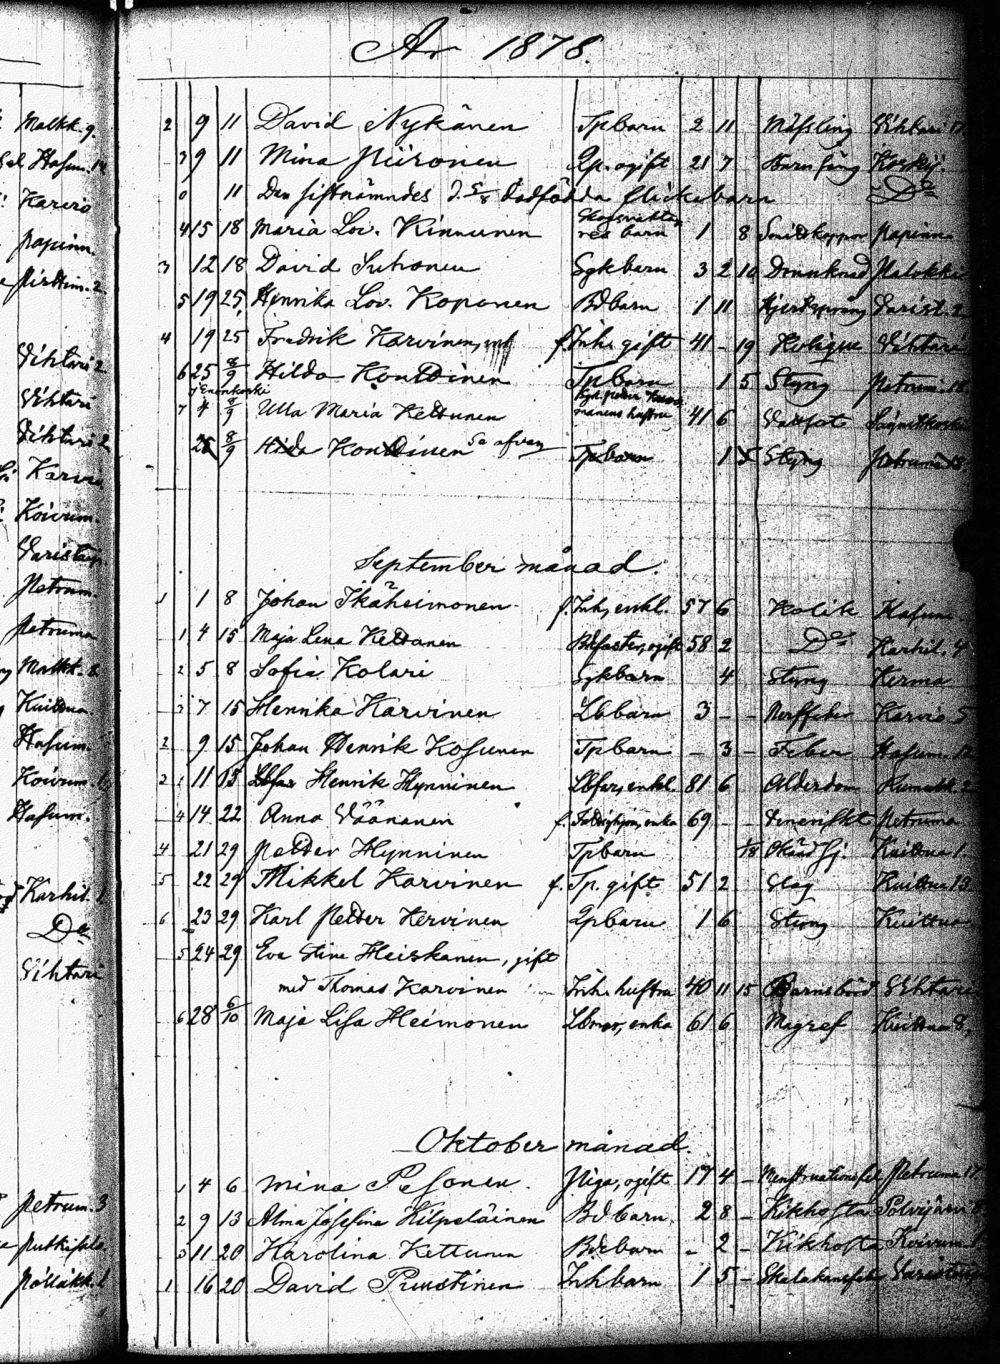 Malkk. 9.
Hasum. 14
Karvio
Papinn.
2.
Vihtari 2
Vihtari
Vihtari 2
Karvio
Koivum.
Varistaip.
Petrum.
Petruma
Malkk. 8.
Kuittua.
Hasum.
Koivum.
Hasum.
Karhil. 1.
Do
Vihtari
Petrum. 3
Putkisalo
Pölläkk. 1
År 1878.
2 9 11 David Nykänen Tpbarn 2 11 Mässling Vihtari 17
3 9 11 Mina Piironen Lp. ogift 21 7 Barnsäng Koskij.
0 11 Den sistnämndes d. 5/8 dödfödda flickebarn Do
4 15 18 Maria Lov. Kinnunen Skogsvaktares barn 1 8 Smittkoppor Papinn.
3 12 18 David Suhonen Sgkbarn 3 2 10 Drunknad Palokki
5 19 25 Henrika Lov. Koponen Bdbarn 1 11 Varist. 2
4 19 25 Fredrik Karvinen, f. Inh. gift 41 - 19 Kolique Vihtari
6 25 8/9 Hilda Konttinen Tpbarn 1 5 Styng Petruma 18
i Enonkoski
7 4 8/9 Ulla Maria Kettunen hustru 41 6 Vattsot
25 8/9 Hilda Konttinen Tpbarn 1 5 Styng Petruma 18.
September månad.
1 1 8 Johan Ikäheimonen f. Inh, enkl. 57 6 Kolik Hasum.
1 4 15 Maja Lena Kettunen ogift 58 2 Do Karhil. 4
2 5 8 Sofia Kolari Sgkbarn 4 Styng Kerma
3 7 15 Henrika Karvinen Lbbarn 3 - - Nerffeber Karvio 5
2 9 15 Johan Henrik Kosunen Tpbarn - 3 - Feber Hasum. 12
2 11 15 Lbfar Henrik Hynninen Lbfar, enkl. 81 6 Ålderdom 2
4 14 22 Anna Väänänen f. enka 69 - - Veneriskt Petruma
4 21 29 Petter Hynninen Tpbarn 1/18 Okänd sj. Kuittua 1.
5 22 29 Mikkel Karvinen f. Tp. gift 51 2 Slag Kuittua 13
6 23 29 Karl Petter Kervinen Lpbarn 1 6 Styng Kuittua
5 24 29 Eva Stina Heiskanen, gift
med Thomas Karvinen Inh. hustru 40 11 15 Barnsbörd Vihtari
6 28 6/10 Maja Lisa Heimonen Lbmor, enka 61 6 Magref Kuittua 8.
Oktober månad.
1 4 6 Mina Pesonen. Piga, ogift 17 4 - Menstruationsfel Petruma 17.
2 9 13 Alma Josefina Hilpeläinen Bdbarn. 2 8 - Kikhosta Polvijärvi
3 11 20 Karolina Kettunen Bdbarn - 2 - Kikhosta Koivum.
1 16 20 David Puustinen Inhbarn 1 5 - Skalakansfeber Varistaip.